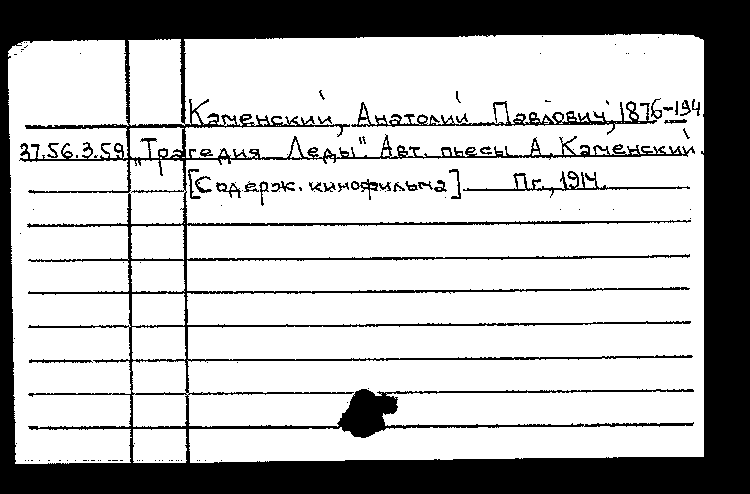 Каменский, Анатолий Павлович, 1876-194
37.56.3.59 „Трагедия Леды". Авт. пьесы А. Каменский.
[Содерж. кинофильма] Пг., 1914.